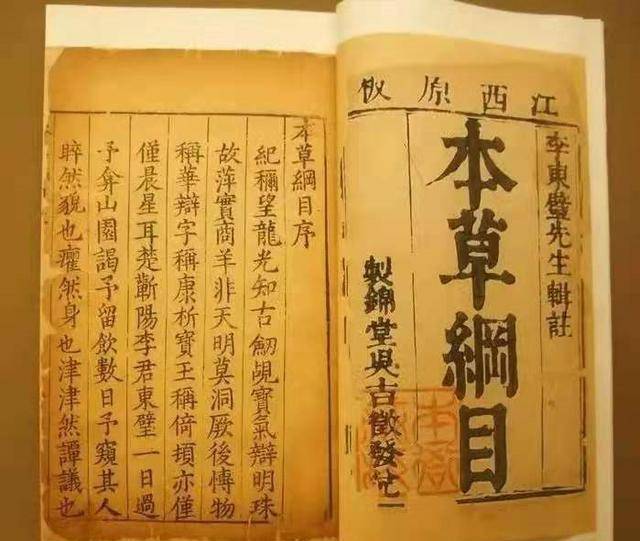 江西原板
李東璧先生輯註
本草綱目
製錦堂吳吉徵發兌
本草綱目序
紀穪望龍光知古劒覘寶氣辯明珠
故萍實商羊非天明莫洞厥後愽物
稱華辯字稱康析寶王稱倚頓亦僅
僅晨星耳楚蘄陽李君東璧一日過
予弇山園謁予留飲數日予窺其人
睟然貌也癯然身也津津然譚議也